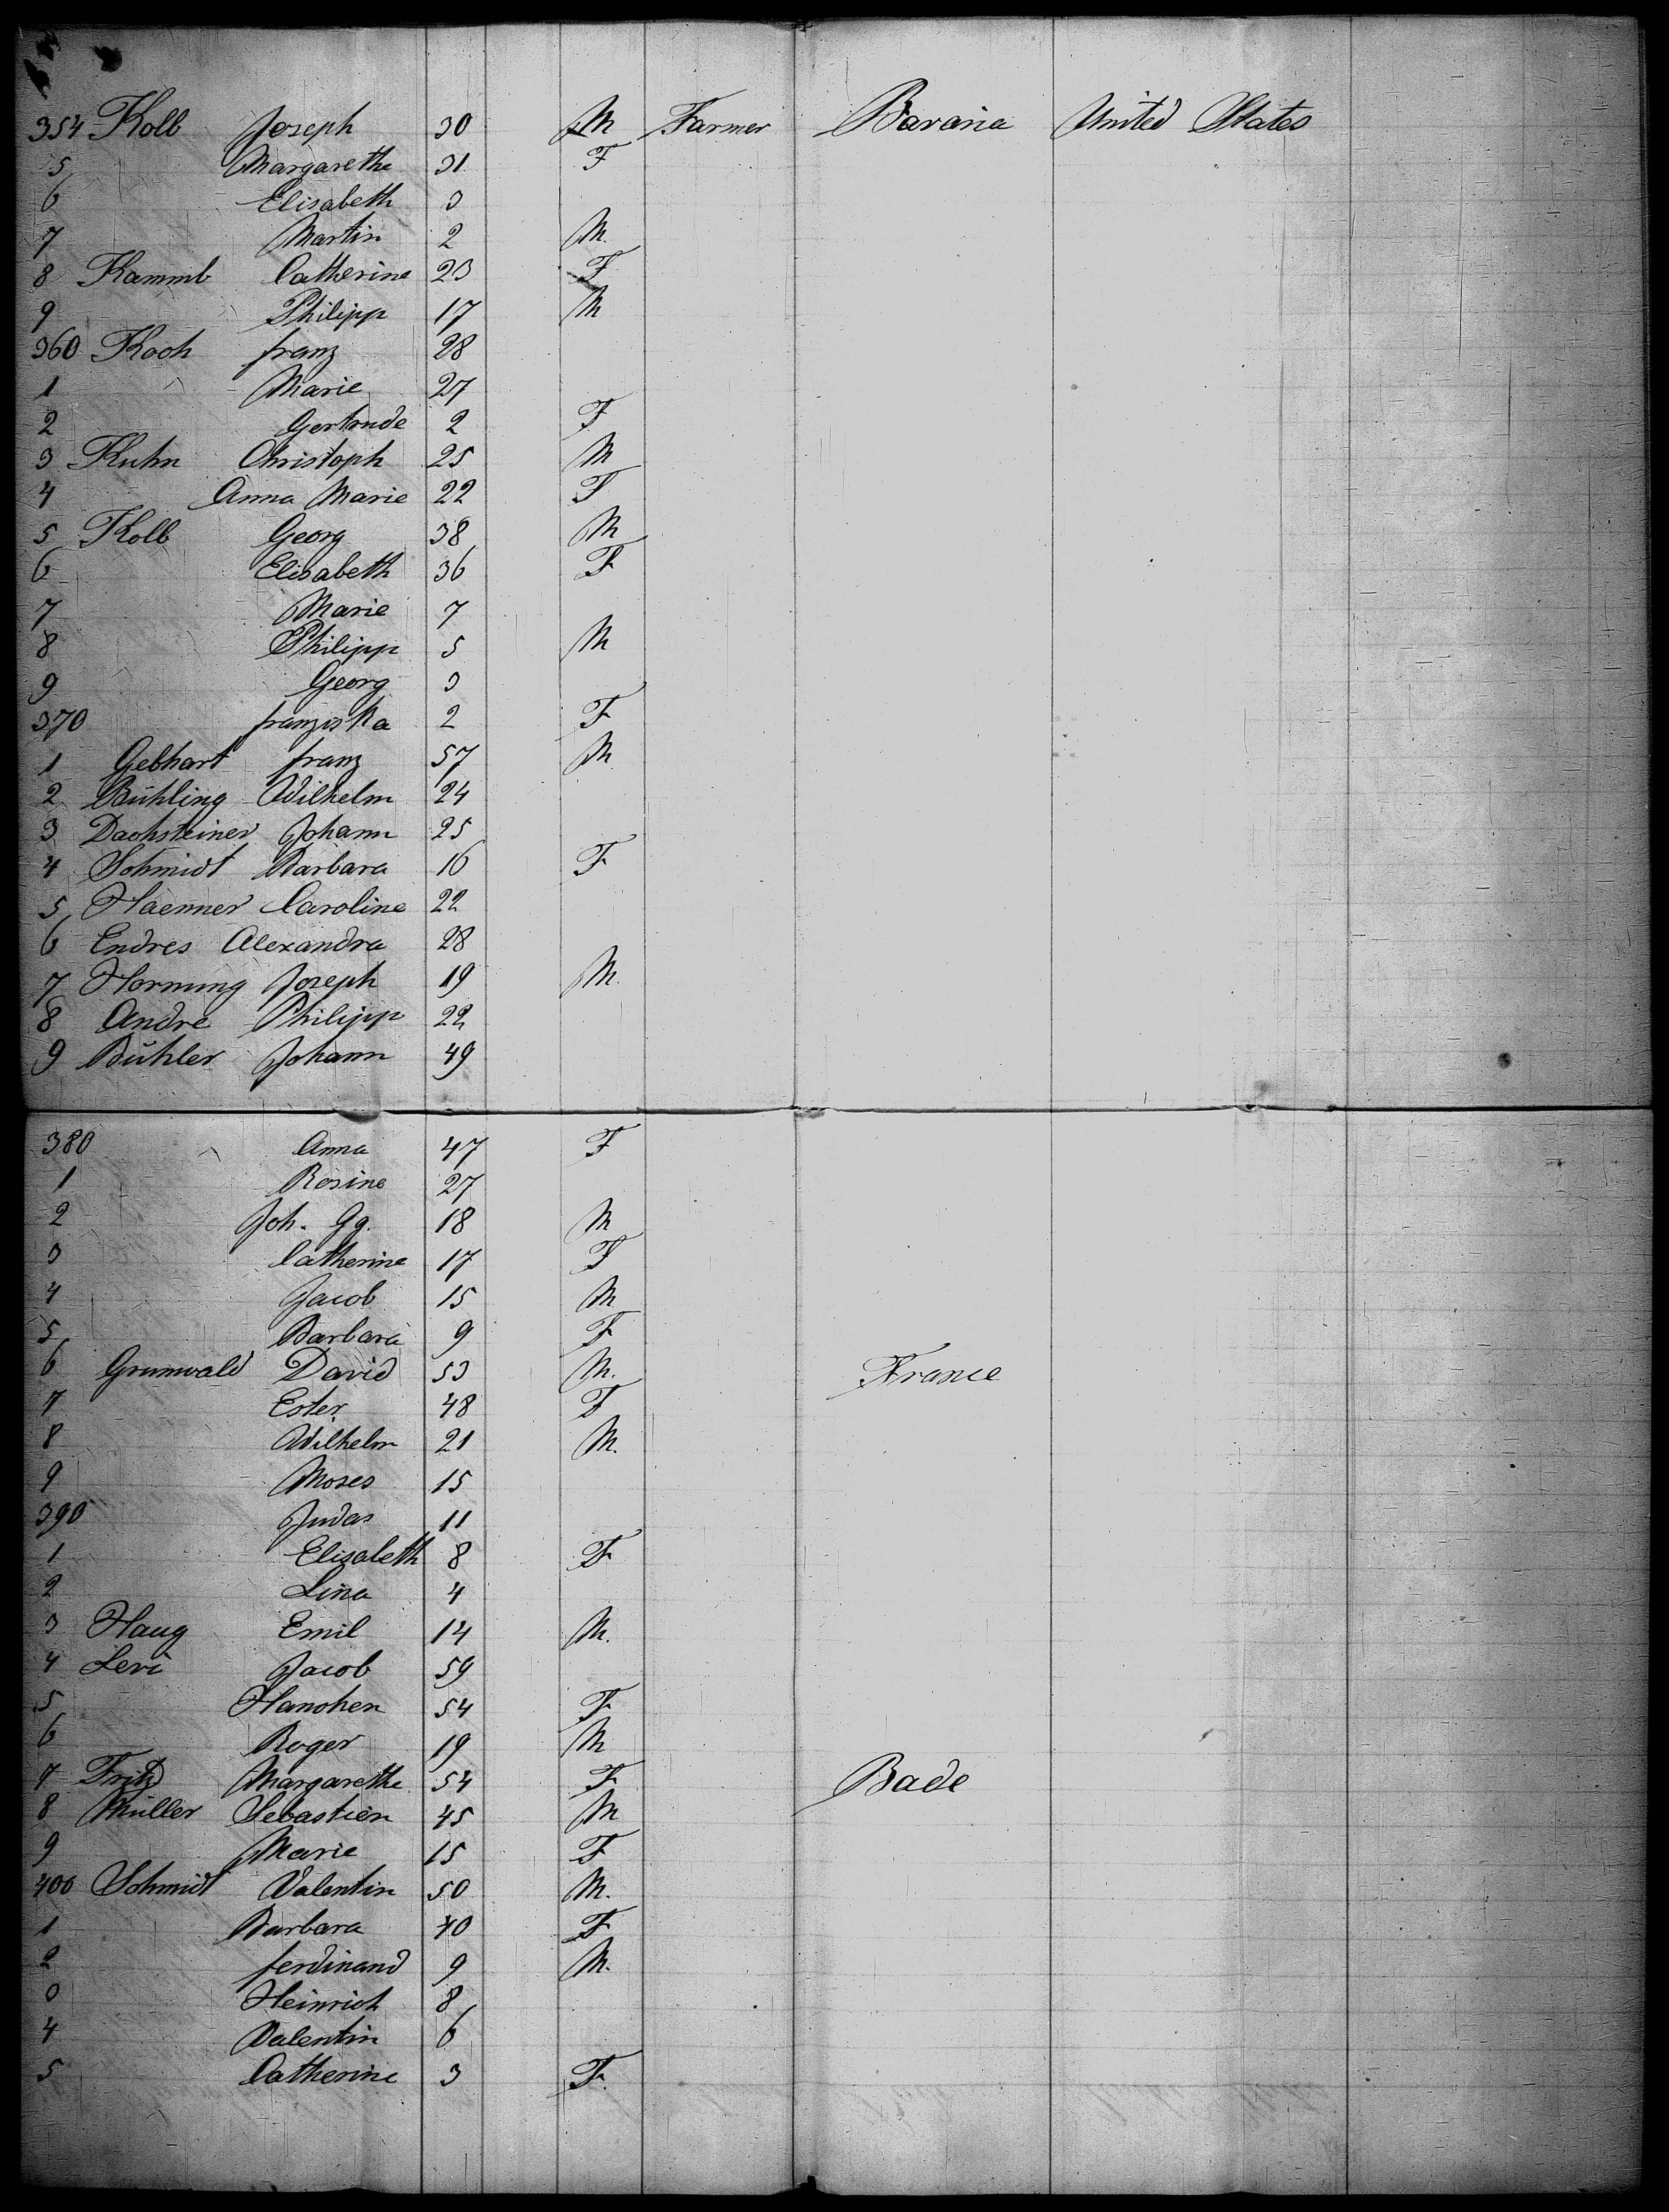 354 Kolb Joseph 30 M Farmer Bavaria United States
5 Margarethe 31 F
6 Elisabeth 3
7 Martin 2 M.
8 Kammb Catherine 23 F
9 Philipp 17 M
360 Koch franz 28
1 Marie 27
2 Gertrude 2 F
3 Kuhn Christoph 25 M
4 Anna Marie 22 F
5 Kolb Georg 38 M
6 Elisabeth 36 F
7 Marie 7
8 Philipp 5 M
9 Georg 3
370 franziska 2 F
1 Gebhart franz 57 M
2 Bühling Wilhelm 24
3 Dachsteiner Johann 25
4 Schmidt Barbara 16 F
5 Haenner Caroline 22
6 Endres Alexandra 28
7 Hornung Joseph 19 M.
8 Andre Philipp 22
9 Bühler Johann 49
380 Anna 47 F
1 Rosine 27
2 Joh. Gg. 18 M
3 Catherine 17 F
4 Jacob 15 M
5 Barbara 9 F
6 Grunwald David 53 M. France
7 Ester 48 F
8 Wilhelm 21 M.
9 Moses 15
390 Judas 11
1 Elisabeth 8 F
2 Lina 4
3 Haug Emil 14 M.
4 Levi Jacob 59
5 Hanchen 54 F
6 Roger 19 M
7 Fritz Margarethe 54 F Bade
8 Müller Sebastien 45 M
9 Marie 15 F
400 Schmidt Valentin 50 M.
1 Barbara 40 F
2 ferdinand 9 M.
3 Heinrich 8
4 Valentin 6
5 Catherine 3 F.